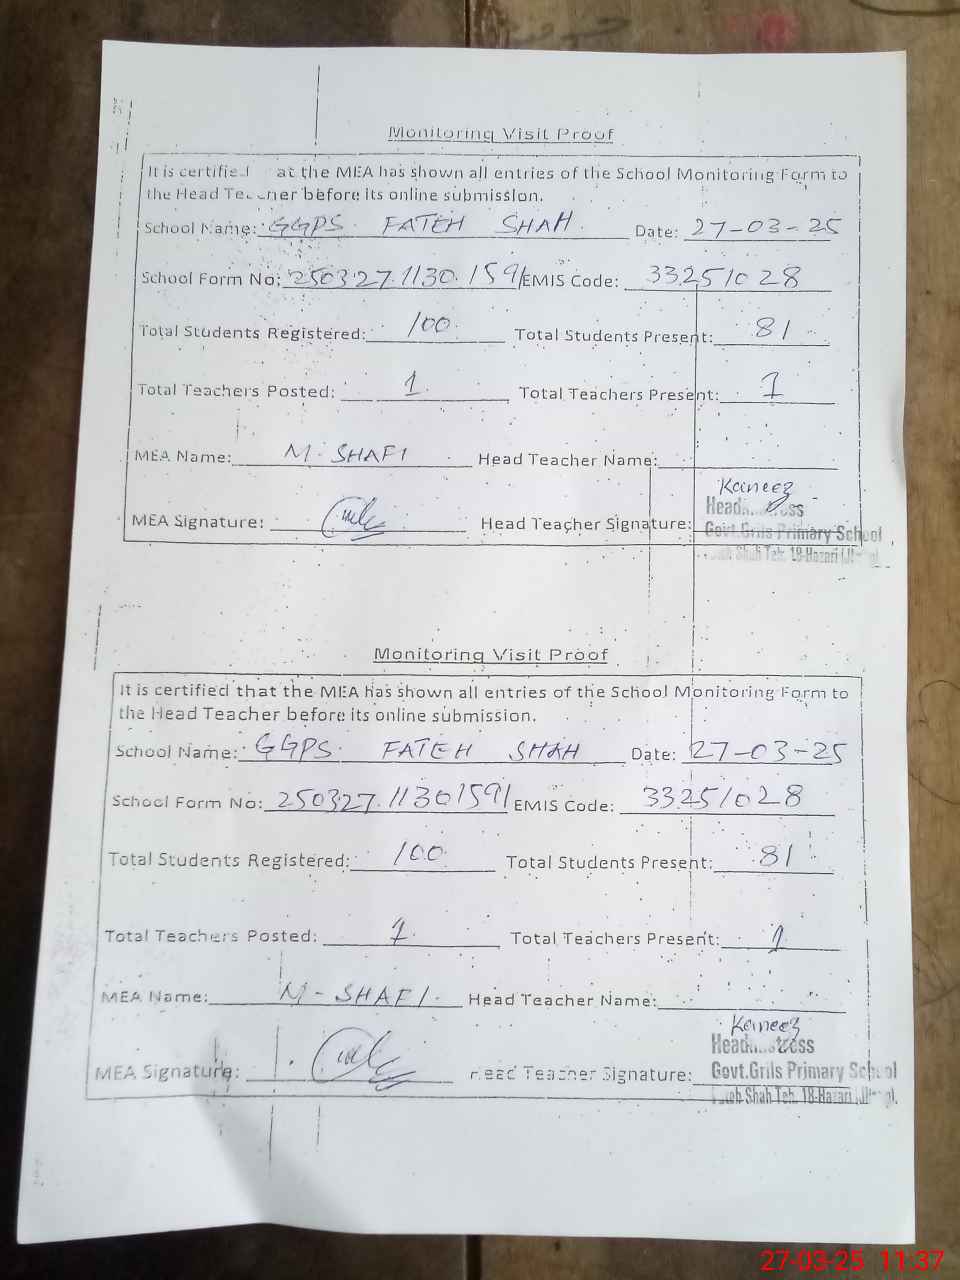 Monitoring Visit Proof
It is certified at the MEA has shown all entries of the School Monitoring Form to
the Head Teacher before its online submission.
School Name: GGPS. FATEH SHAH. Date: 27-03-25
School Form No: 250327.1130.1591 EMIS Code: 33251028
Total Students Registered: 100 Total Students Present: 81
Total Teachers Posted: 1 Total Teachers Present: 1
MEA Name: M. SHAFI Head Teacher Name:
Kaneez
MEA Signature: Head Teacher Signature: Headmistress
Govt.Grils Primary School
Shah Teh. 18-Hazari
Monitoring Visit Proof
It is certified that the MEA has shown all entries of the School Monitoring Form to
the Head Teacher before its online submission.
School Name: GGPS. FATEH SHAH Date: 27-03-25
School Form No: 250327.11301591 EMIS Code: 33251028
Total Students Registered: 100 Total Students Present: 81
Total Teachers Posted: 1 Total Teachers Present: 1
MEA Name: M-SHAFI. Head Teacher Name:
Kaneez
Headmistress
MEA Signature: Head Teacher Signature: Govt.Grils Primary School
Fateh Shah Teh. 18-Hazari
27-03-25 11:37